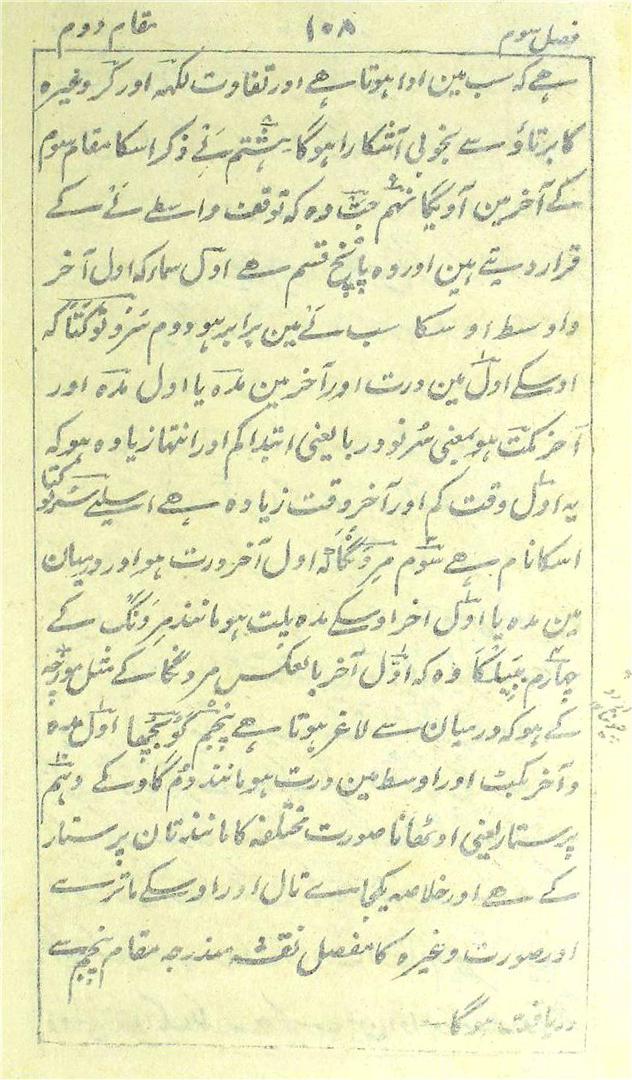 فصل سوم ۱۰۸ مقام دوم
ہے کہ سب مین ادا ہوتا ہے اور تفاوت لگہہ اور گر وغیرہ
کا برتاؤ سے بخوبی آشکارا ہوگا ہشتم لَے ذکر اسکا مقام سوم
کے آخر مین آویگا نہم جت وہ کہ توقف واسطے لَے کے
قرار دیتے ہین اور وہ پانچ قسم ہے اول سما کہ اول آخر
واوسط اوسکا سب لَے مین برابر ہو دوم سروتوگتا کہ
اوسکے اول مین درت اور آخر مین مدہ یا اول مدہ اور
آخر بلمت ہو یعنی سُرنو دربا یعنی ابتدا کم اور انتہا زیادہ ہو کہ
یہ اول وقت کم اور آخر وقت زیادہ ہے اسیلئے سروتوگتا
اسکا نام ہے سوم مردنگا کہ اول آخر درت ہو اور درمیان
مین مدہ یا اول اخر اوسکے مدہ بلت ہو مانند مردنگ کے
چہارم پپیلکا وہ کہ اول آخر بالعکس مردنگا کے مثل مورچہ
کے ہو کہ درمیان سے لاغر ہوتا ہے پنجم گوپچھا اول مدہ
وآخر بلمبت اور اوسط مین درت ہو مانند دُم گاو کے دہم
پرستار یعنی اوٹھانا صورت مختلفہ کا مانند تان پرستار
کے ہے اور خلاصہ یکجا سے تال اور اوسکے ماتر سے
اور صورت وغیرہ کا مفصل نقشہ مندرجہ مقام پنجم سے
دریافت ہوگا